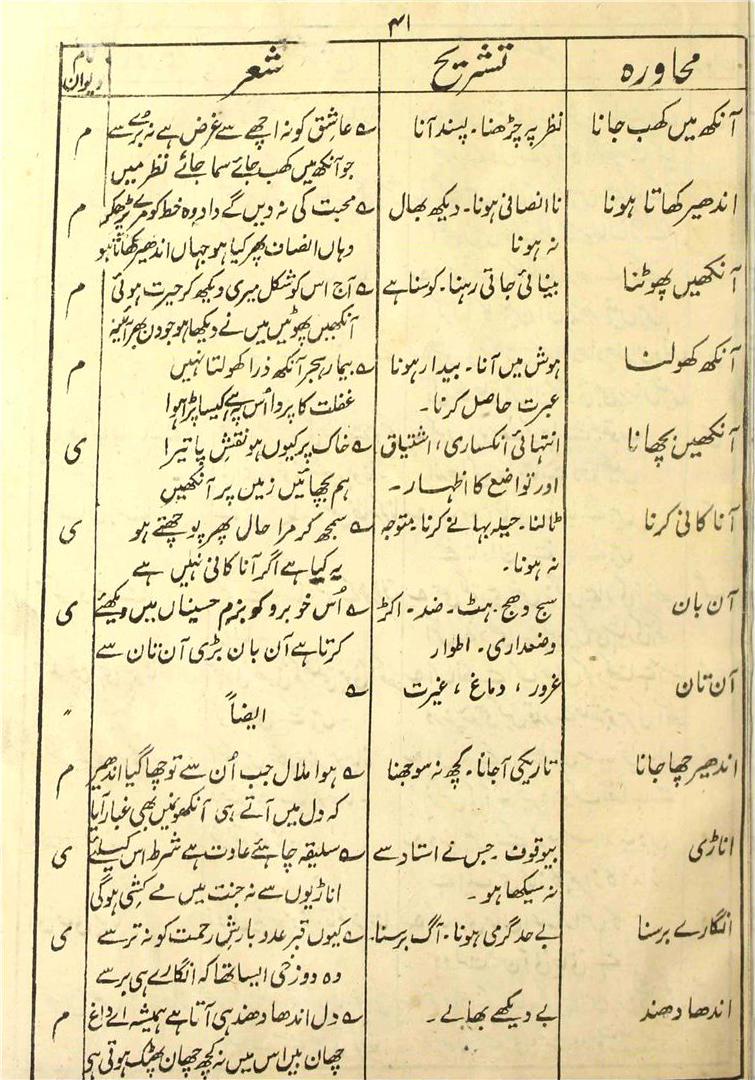 ۴۱
محاورہ تشریح شعر نام دیوان
آنکھ میں کھب جانا نظر پہ چڑھنا۔ پسند آنا ؎ عاشق کو نہ اچھے سے غرض ہے نہ بُرے سے م
جو آنکھ میں کھب جائے سما جائے نظر میں
اندھیر کھاتا ہونا نا انصافی ہونا۔ دیکھ بھال ؎ محبت کی نہ دیں گے داد وہ خط کو مرے پڑھکر م
نہ ہونا وہاں انصاف پھر کیا ہو جہاں اندھیر کھاتا ہو
آنکھیں پھوٹنا بینائی جاتی رہنا۔ کوسنا ہے ؎ آج اس کو شکل میری دیکھ کر حیرت ہوئی م
آنکھیں پھوٹیں میں نے دیکھا ہو جو دن بھر آئینہ
آنکھ کھولنا ہوش میں آنا۔ بیدار ہونا ؎ بیمار ہجر آنکھ ذرا کھولتا نہیں م
عبرت حاصل کرنا۔ غفلت کا پردا اُس پہ ہے کیسا پڑا ہوا
آنکھیں بچھانا انتہائی انکساری، اشتیاق ؎ خاک پر کیوں ہو نقشِ پا تیرا ی
اور تواضع کا اظہار۔ ہم بچھائیں زمیں پر آنکھیں
آنا کانی کرنا ٹالنا۔ حیلہ بہانے کرنا۔ متوجہ ؎ سمجھ کر مرا حال پھر پوچھتے ہو ی
نہ ہونا۔ یہ کیا ہے اگر آنا کانی نہیں ہے
آن بان سج دھج۔ ہٹ۔ ضد۔ اکڑ ؎ اُس خوبرو کو بزم حسیناں میں دیکھئے ی
وضعداری۔ اطوار کرتا ہے آن بان بڑی آن تان سے
آن تان غرور، دماغ، غیرت ؎
ایضاً "
اندھیر چھا جانا تاریکی آجانا۔ کچھ نہ سوجھنا ؎ ہوا ملال جب اُن سے تو چھا گیا اندھیر م
کہ دل میں آتے ہی آنکھوں میں بھی غبار آیا
اناڑی بیوقوف۔ جس نے استاد سے ؎ سلیقہ چاہئے عادت ہے شرط اس کیلئے ی
نہ سیکھا ہو۔ اناڑیوں سے نہ جنت میں مے کشی ہوگی
انگارے برسنا بے حد گرمی ہونا۔ آگ برسنا۔ ؎ کیوں قبر عدد بارشِ رحمت کو نہ ترسے ی
وہ دوزخی ایسا تھا کہ انگارے ہی برسے
اندھا دھند بے دیکھے بھالے۔ ؎ دل اندھا دھند ہی آتا ہے ہمیشہ اے داغ م
چھان بین اس میں نہ کچھ چھان پھٹک ہوتی ہی